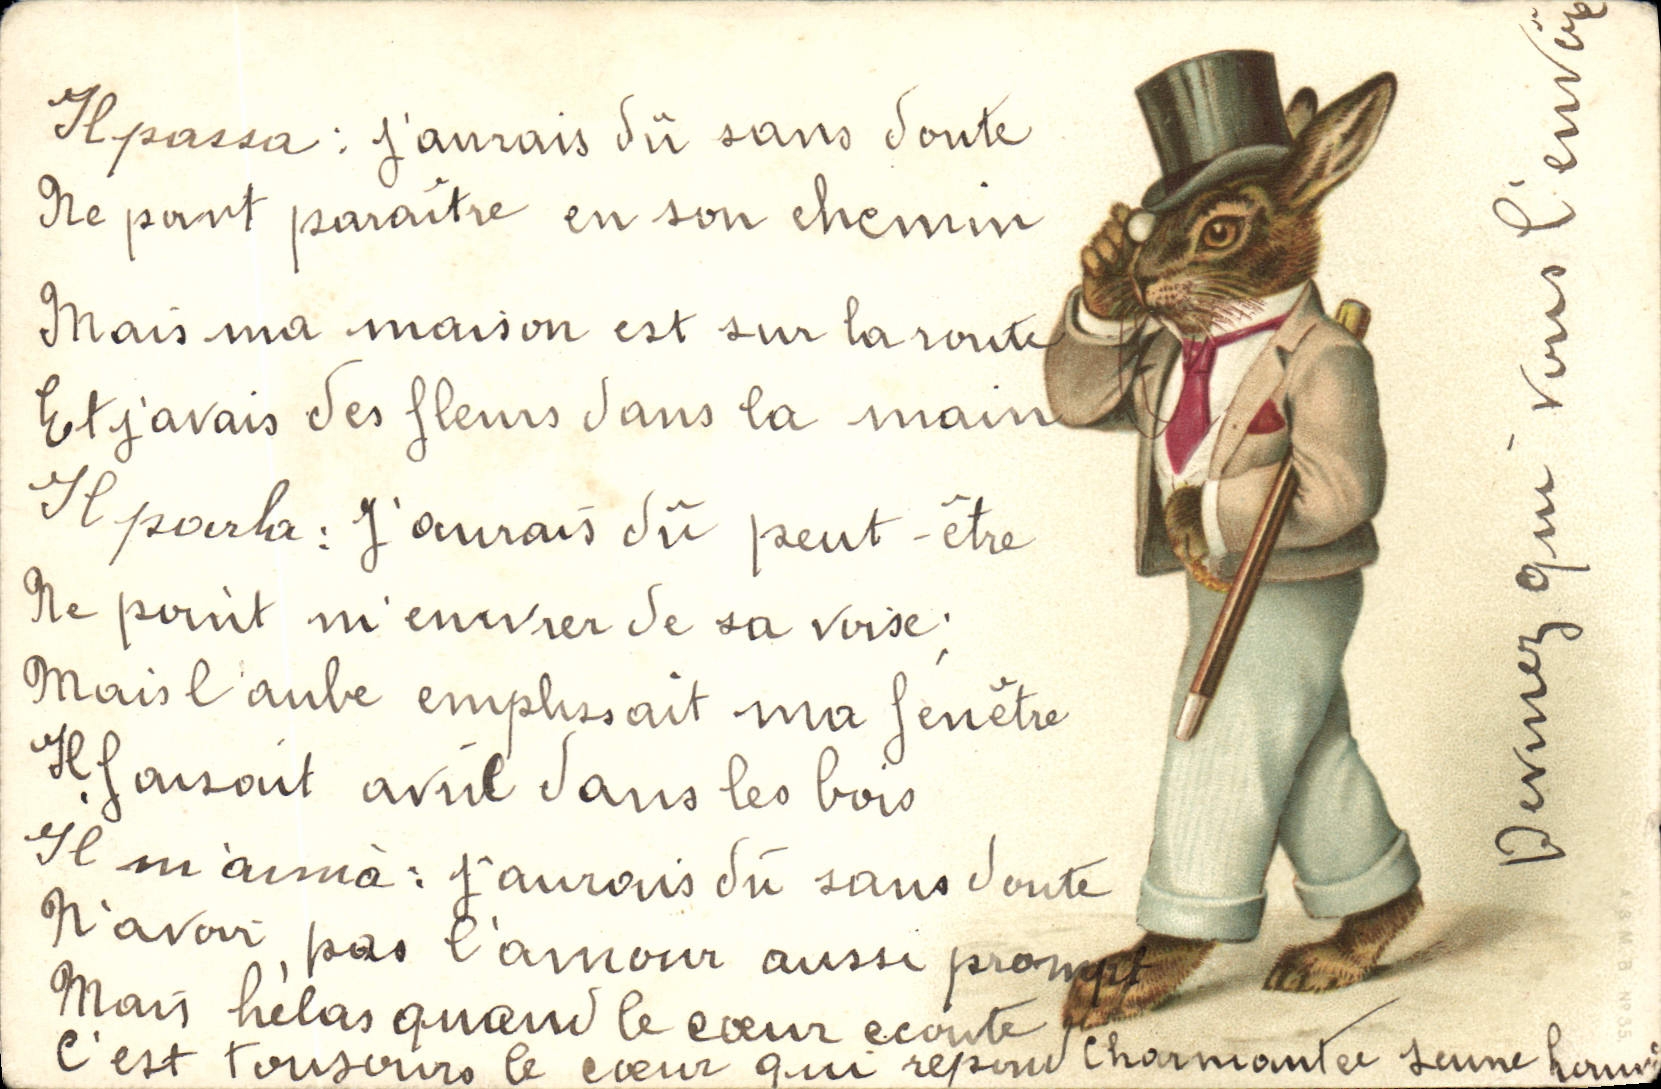 Il passa : j'aurais dû sans doute
Ne point paraître en son chemin
Mais ma maison est sur la route
Et j'avais des fleurs dans la main
Il parla : J'aurais dû peut-être
Ne point m'enivrer de sa voix ;
Mais l'aube emplissait ma fenêtre
Il faisait avril dans les bois
Il m'aima : j'aurais dû sans doute
N'avoir pas l'amour aussi prompt
Mais hélas quand le cœur ecoute
C'est toujours le cœur qui répond
Charmante jeune
Devinez qui vous l'envoie